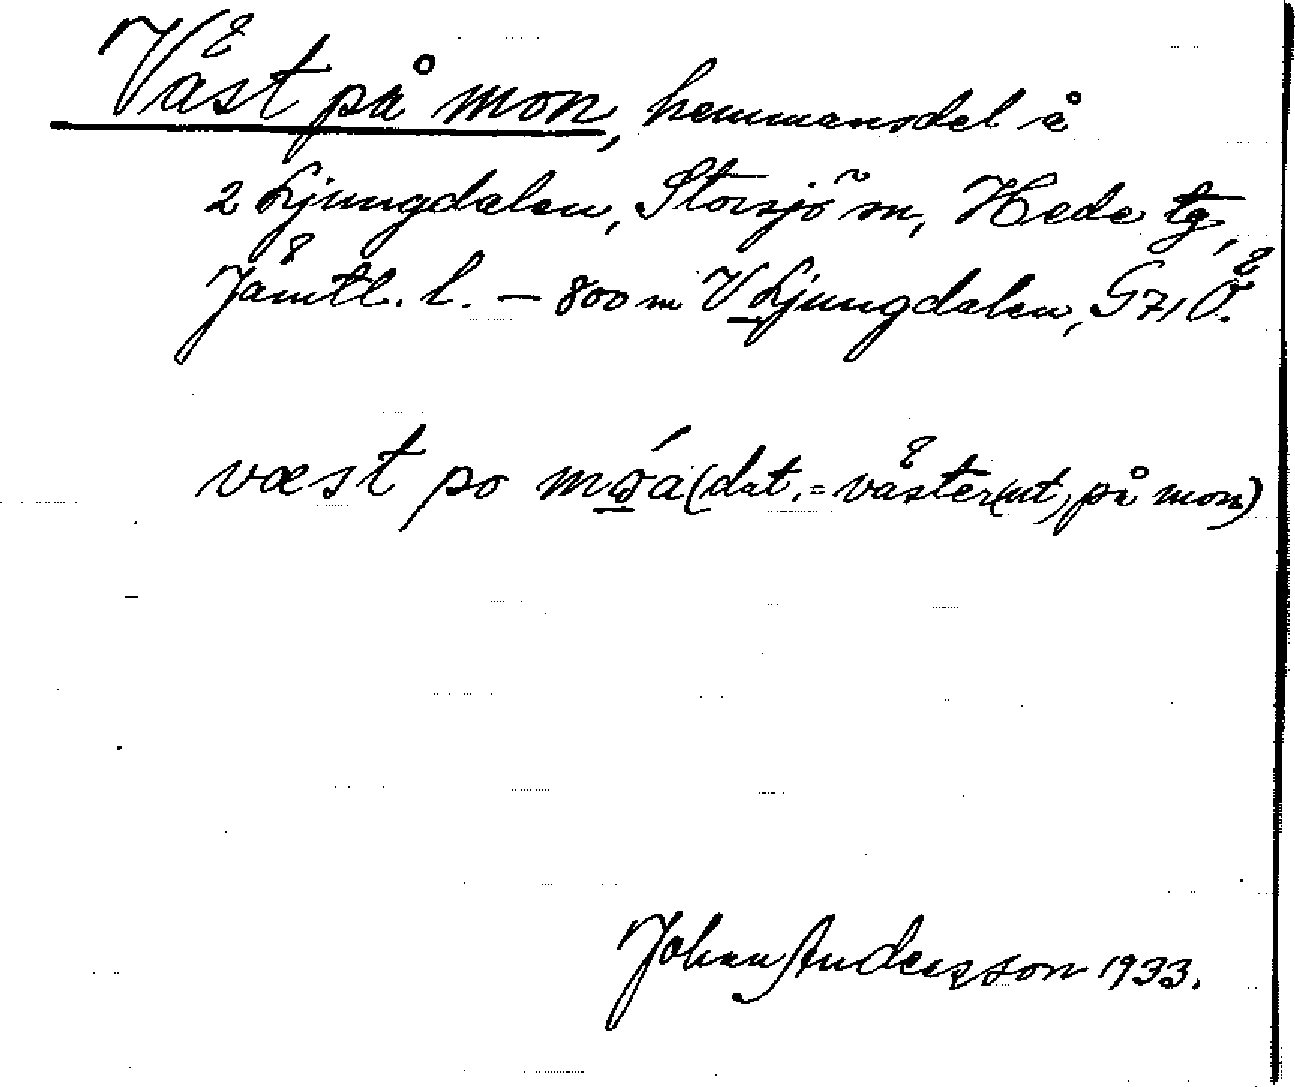 Väst på mon, hemmansdel å
2 Ljungdalen, Storsjö sn, Hede tg,
Jämtl. l. – 800 m V Ljungdalen, G 71 Ö.
væst po mo̱a (dat. = väster(ut) på mon)
Johan Andersson 1933.